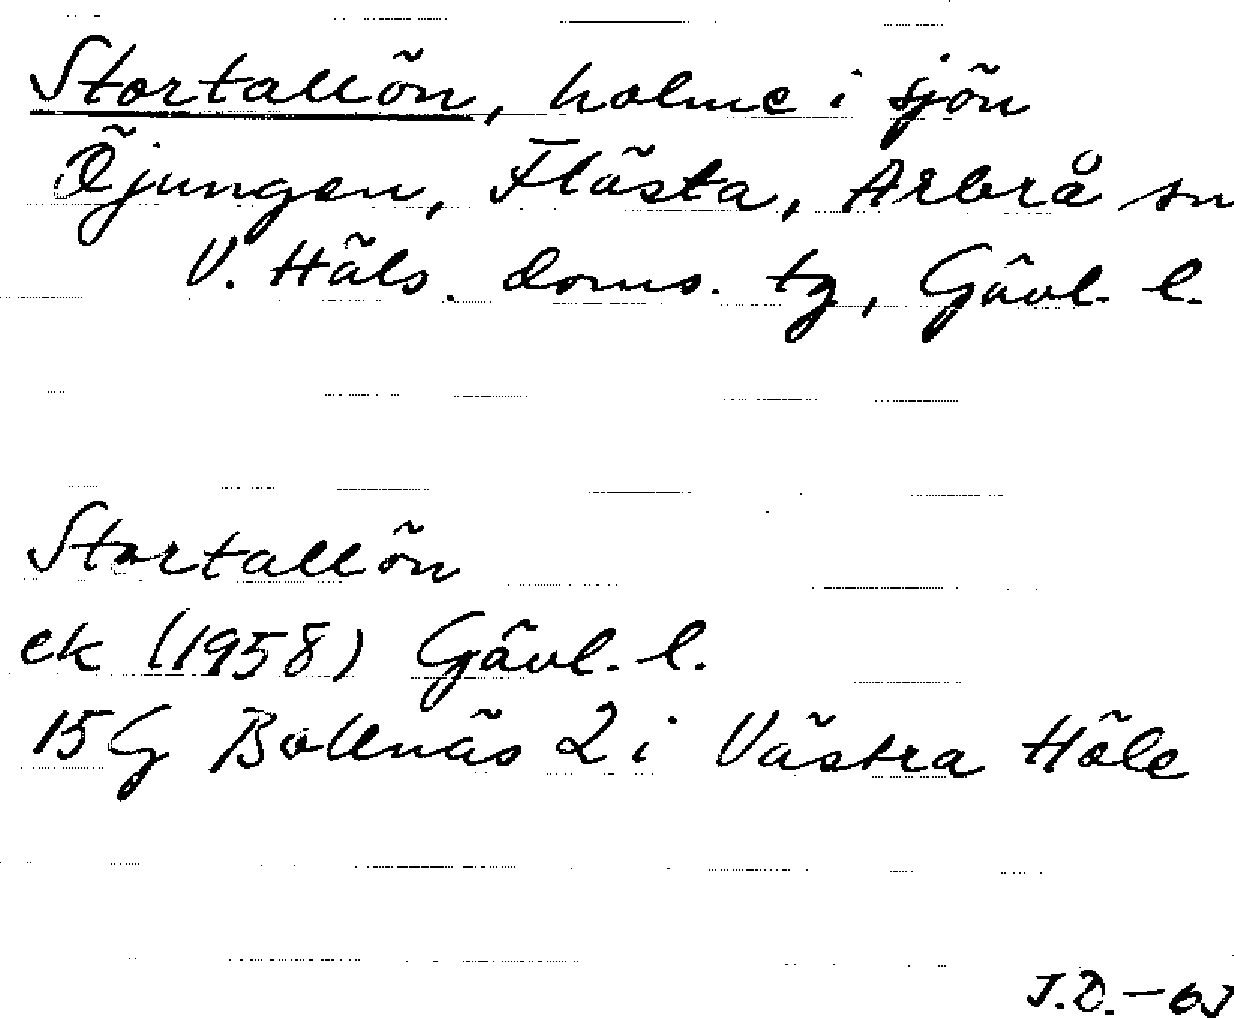 Stortallön, holme i sjön
Öjungen, Flästa, Arbrå sn
V. Häls. doms. tg, Gävl. l.
Stortallön
ek (1958) Gävl. l.
15G Bollnäs 2 i Västra Häls
J.D. -